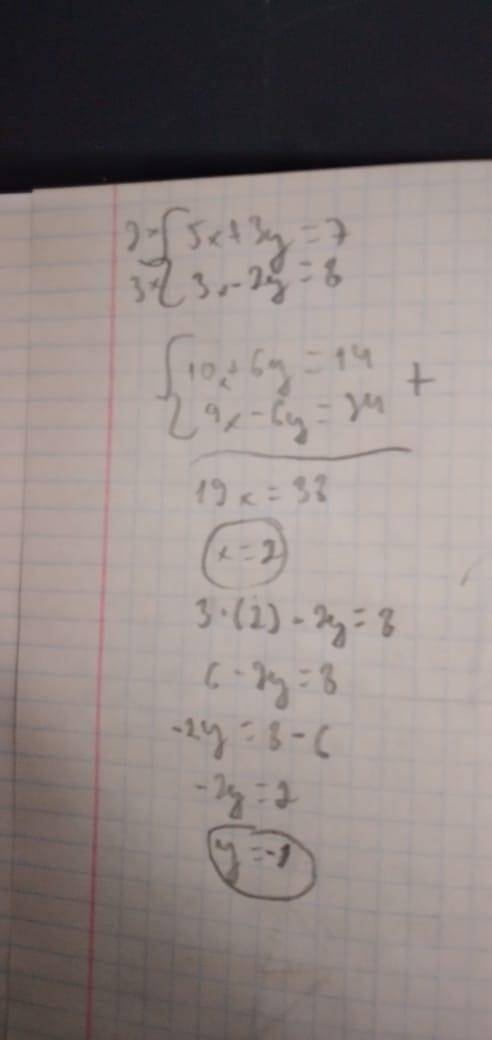 2× { 5x+3y=7
3× { 3x-2y=8
{ 10x+6y=14 +
{ 9x-6y=24
19x=38
x=2
3·(2)-2y=8
6-2y=8
-2y=8-6
-2y=2
y=-1